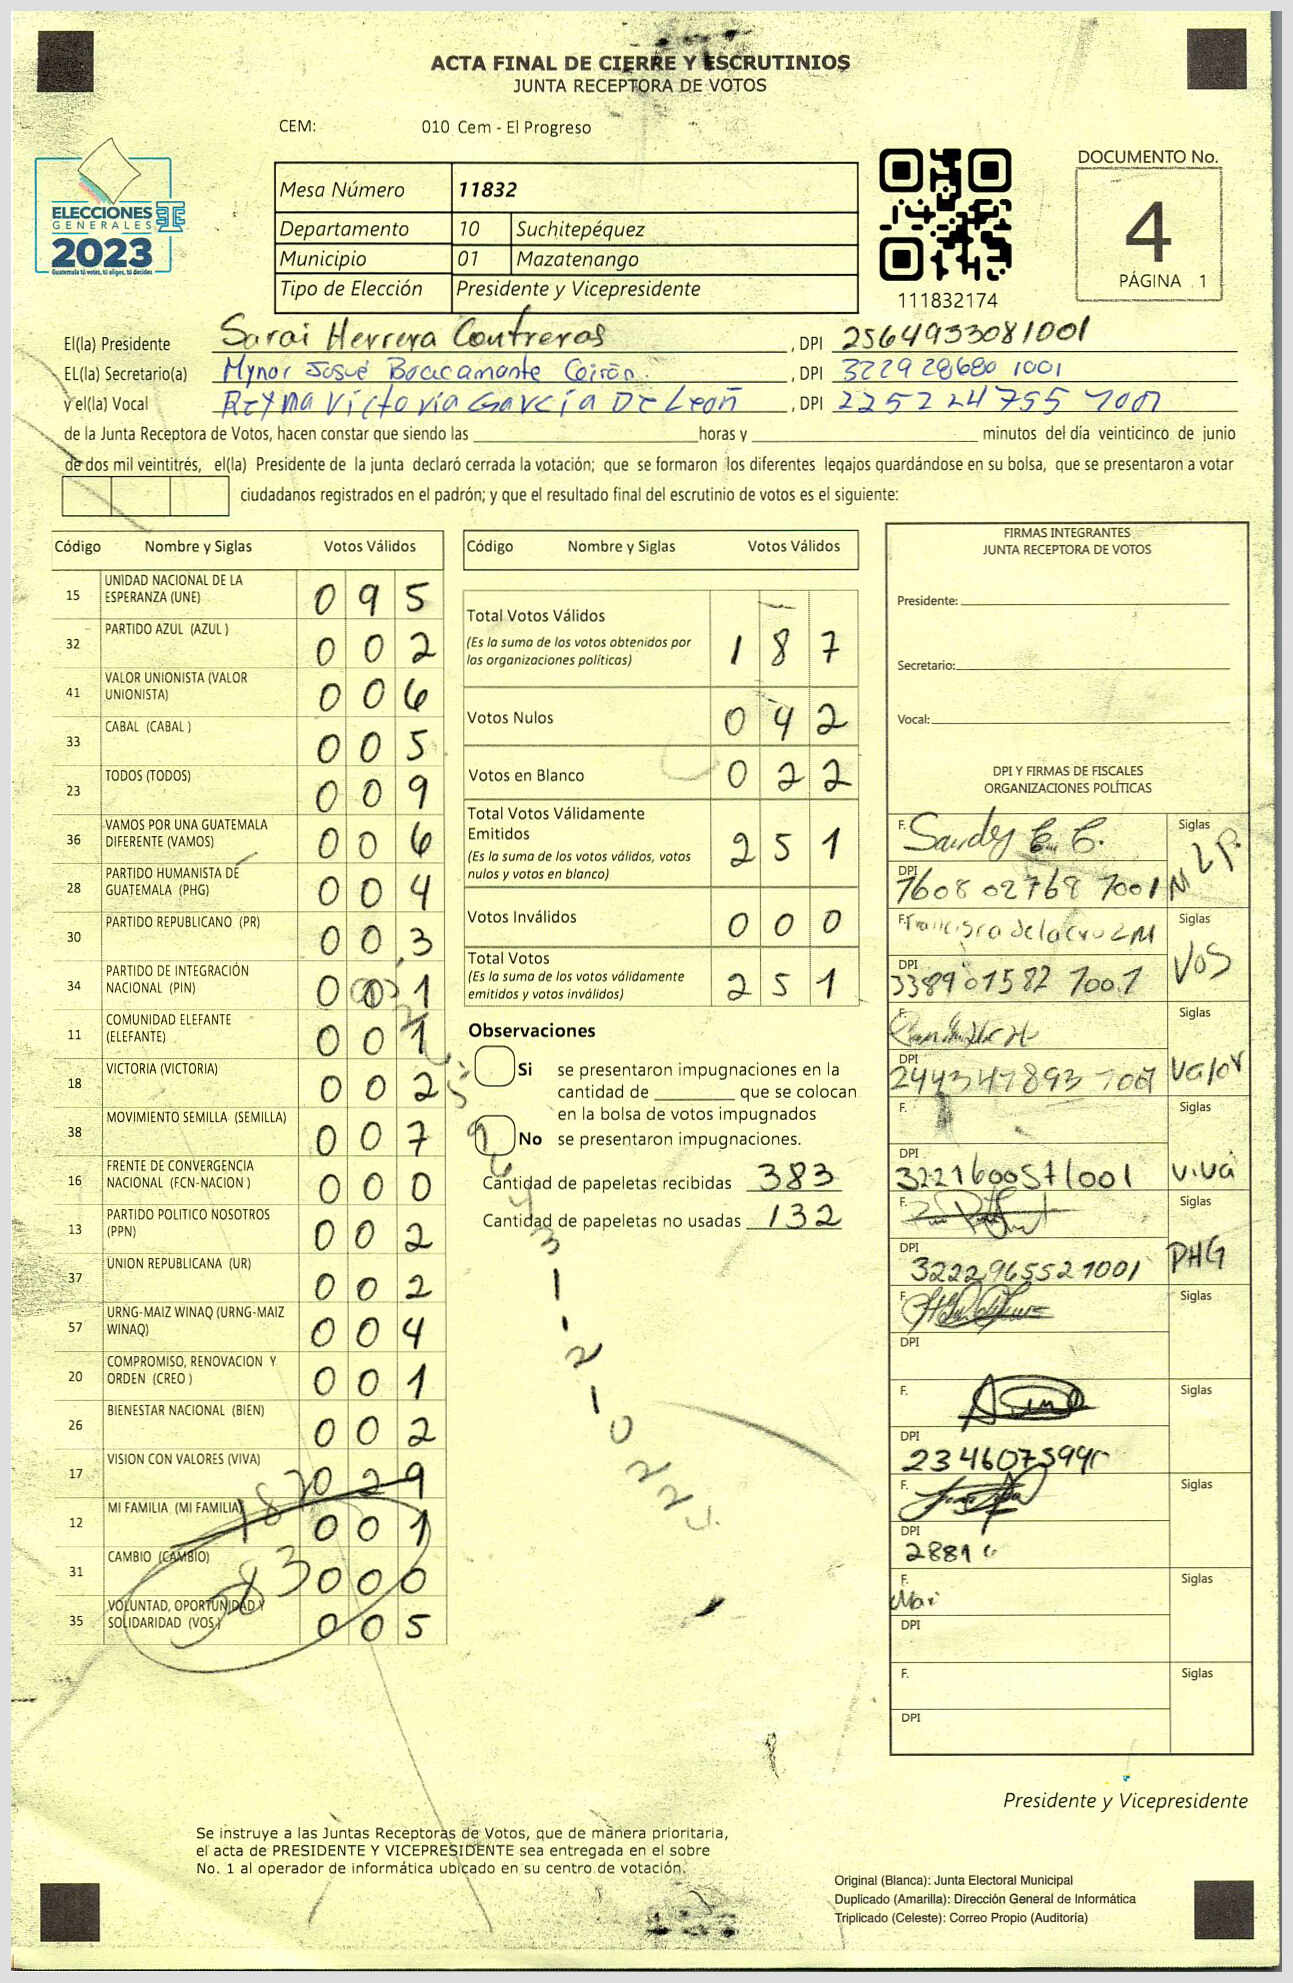 ACTA FINAL DE CIERRE Y ESCRUTINIOS
JUNTA RECEPTORA DE VOTOS
CEM: 010 Cem - El Progreso
ELECCIONES
GENERALES
2023
Guatemala tú votas, tú eliges, tú decides
Mesa Número 11832
Departamento 10 Suchitepéquez
Municipio 01 Mazatenango
Tipo de Elección Presidente y Vicepresidente
111832174
DOCUMENTO No.
4
PÁGINA 1
El(la) Presidente Sarai Herrera Contreras, DPI 2564933081001
EL(la) Secretario(a) Mynor Josué Bracamonte, DPI 3229286801001
y el(la) Vocal Reyna Victoria García De León, DPI
de la Junta Receptora de Votos, hacen constar que siendo las horas y minutos del día veinticinco de junio
de dos mil veintitrés, el(la) Presidente de la junta declaró cerrada la votación; que se formaron los diferentes legajos quardándose en su bolsa, que se presentaron a votar
ciudadanos registrados en el padrón; y que el resultado final del escrutinio de votos es el siguiente:
Código Nombre y Siglas Votos Válidos
15 UNIDAD NACIONAL DE LA ESPERANZA (UNE) 095
32 PARTIDO AZUL (AZUL ) 002
41 VALOR UNIONISTA (VALOR UNIONISTA) 006
33 CABAL (CABAL ) 005
23 TODOS (TODOS) 009
36 VAMOS POR UNA GUATEMALA DIFERENTE (VAMOS) 006
28 PARTIDO HUMANISTA DE GUATEMALA (PHG) 004
30 PARTIDO REPUBLICANO (PR) 003
34 PARTIDO DE INTEGRACIÓN NACIONAL (PIN) 001
11 COMUNIDAD ELEFANTE (ELEFANTE) 001
18 VICTORIA (VICTORIA) 002
38 MOVIMIENTO SEMILLA (SEMILLA) 007
16 FRENTE DE CONVERGENCIA NACIONAL (FCN-NACION ) 000
13 PARTIDO POLITICO NOSOTROS (PPN) 002
37 UNION REPUBLICANA (UR) 002
57 URNG-MAIZ WINAQ (URNG-MAIZ WINAQ) 004
20 COMPROMISO, RENOVACION Y ORDEN (CREO ) 001
26 BIENESTAR NACIONAL (BIEN) 002
17 VISION CON VALORES (VIVA) 029
12 MI FAMILIA (MI FAMILIA) 001
31 CAMBIO (CAMBIO) 000
35 VOLUNTAD, OPORTUNIDAD Y SOLIDARIDAD (VOS) 005
187
Código Nombre y Siglas Votos Válidos
Total Votos Válidos 187
(Es la suma de los votos obtenidos por
las organizaciones políticas)
Votos Nulos 042
Votos en Blanco 022
Total Votos Válidamente
Emitidos 251
(Es la suma de los votos válidos, votos
nulos y votos en blanco)
Votos Inválidos 000
Total Votos 251
(Es la suma de los votos válidamente
emitidos y votos inválidos)
Observaciones
Si se presentaron impugnaciones en la
cantidad de que se colocan
en la bolsa de votos impugnados
No se presentaron impugnaciones.
Cantidad de papeletas recibidas 383
Cantidad de papeletas no usadas 132
FIRMAS INTEGRANTES
JUNTA RECEPTORA DE VOTOS
Presidente:
Secretario:
Vocal:
DPI Y FIRMAS DE FISCALES
ORGANIZACIONES POLÍTICAS
F. Sandy Siglas MLP.
DPI
F. Francisca de la cruz M Siglas VOS
DPI
F. Siglas Valor
DPI
F. Siglas Viva
DPI 3221600571001
F. Siglas PHG
DPI 3222965521001
F. Siglas
DPI
F. Siglas
DPI
F. Siglas
DPI
F. Siglas
DPI
F. Siglas
DPI
Presidente y Vicepresidente
Se instruye a las Juntas Receptoras de Votos, que de manera prioritaria,
el acta de PRESIDENTE Y VICEPRESIDENTE sea entregada en el sobre
No. 1 al operador de informática ubicado en su centro de votación.
Original (Blanca): Junta Electoral Municipal
Duplicado (Amarilla): Dirección General de Informática
Triplicado (Celeste): Correo Propio (Auditoría)